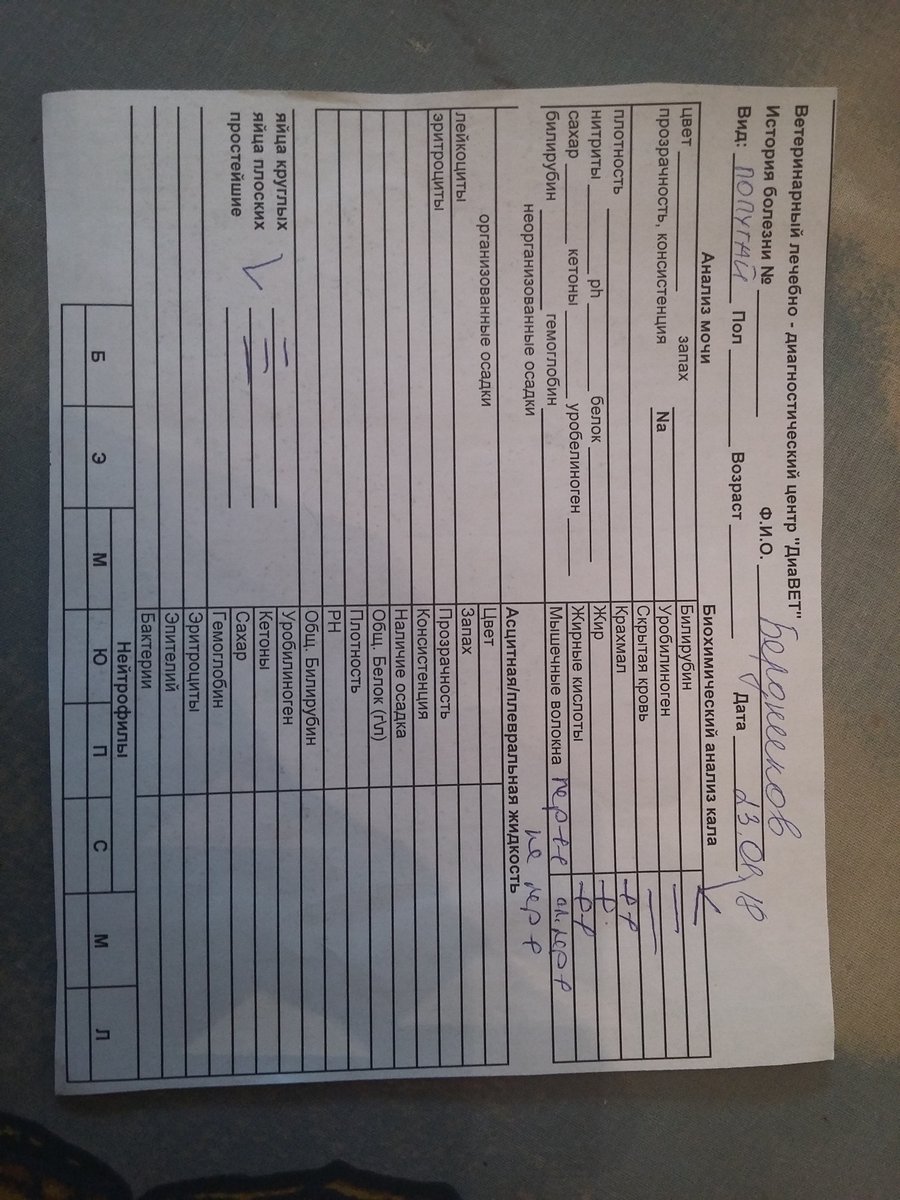 Ветеринарный лечебно - диагностический центр "ДиаВЕТ"
История болезни № Ф.И.О.
Вид: ПОПУГАЙ Пол Возраст Дата
Анализ мочи
цвет запах
прозрачность, консистенция Na
плотность
нитриты ph белок
сахар кетоны уробелиноген
билирубин гемоглобин
неорганизованные осадки
организованные осадки
лейкоциты
эритроциты
яйца круглых –
яйца плоских –
простейшие –
Биохимический анализ кала
Билирубин –
Уробилиноген –
Скрытая кровь –
Крахмал ++
Жир +
Жирные кислоты ++
Мышечные волокна пер ++
не пер +
Асцитная/плевральная жидкость
Цвет
Запах
Прозрачность
Консистенция
Наличие осадка
Общ. Белок (г\л)
Плотность
PH
Общ. Билирубин
Уробилиноген
Кетоны
Сахар
Гемоглобин
Эритроциты
Эпителий
Бактерии
Нейтрофилы
Б Э М Ю П С М Л